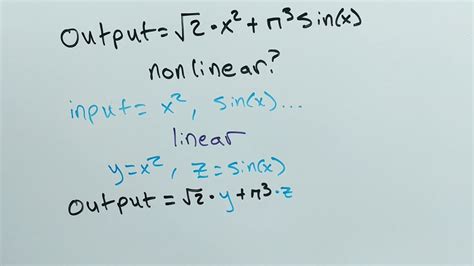 Output = √2 · x² + π³ sin(x)
nonlinear?
input = x², sin(x)...
linear
y = x², z = sin(x)
Output = √2 · y + π³ · z